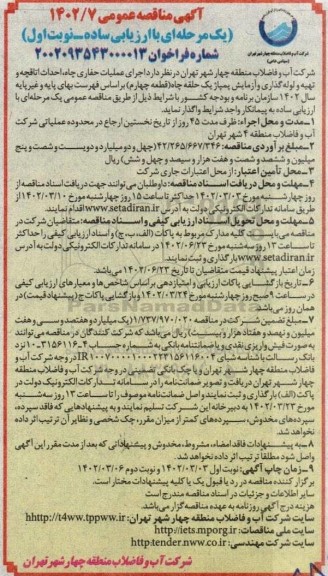 آگهی مناقصه عمومی ۱۴۰۲/۷
(یک مرحله‌ای با ارزیابی ساده_نوبت اول)
شماره فراخوان ۲۰۰۲۰۹۳۵۴۳۰۰۰۰۱۳
شرکت آب و فاضلاب منطقه چهار شهر تهران
(سهامی خاص)
شرکت آب و فاضلاب منطقه چهار شهر تهران در نظر دارد اجرای عملیات حفاری چاه، احداث اتاقچه و
تهیه و لوله‌گذاری و آزمایش پمپاژ یک حلقه چاه (قطعه چهارم) براساس فهرست بهای پایه و غیرپایه
سال ۱۴۰۲ سازمان برنامه و بودجه کشور با شرایط ذیل از طریق مناقصه عمومی یک مرحله‌ای با
ارزیابی ساده به پیمانکار واجد شرایط واگذار نماید.
۱-مدت و محل اجراء: ظرف مدت ۴۵ روز از تاریخ نخستین ارجاع در محدوده عملیاتی شرکت
آب و فاضلاب منطقه ۴ شهر تهران
۲-مبلغ برآوردی مناقصه: ۴۲/۲۶۵/۶۶۷/۳۴۶ (چهل و دو میلیارد و دویست و شصت و پنج
میلیون و ششصد و شصت و هفت هزار و سیصد و چهل و شش) ریال
۳-محل تأمین اعتبار: از محل اعتبارات جاری شرکت
۴-مهلت و محل دریافت اسناد مناقصه: داوطلبان می‌توانند جهت دریافت اسناد مناقصه از
روز چهارشنبه مورخ ۱۴۰۲/۰۳/۰۳ حداکثر تا ساعت ۱۵ روز چهارشنبه مورخ ۱۴۰۲/۰۳/۱۰ از
طریق سامانه تدارکات الکترونیکی دولت به آدرس www.setadiran.ir اقدام نمایند.
۵-مهلت و محل تحویل اسناد ارزیابی کیفی و اسناد مناقصه: متقاضیان شرکت در
مناقصه می‌بایست کلیه مدارک مربوط به پاکات (الف، ب، ج) و اسناد ارزیابی کیفی را حداکثر
تا ساعت ۱۳ روز سه‌شنبه مورخ ۱۴۰۲/۰۳/۲۳ در سامانه تدارکات الکترونیکی دولت به آدرس
www.setadiran.ir بارگذاری و ثبت نمایند.
زمان اعتبار پیشنهاد قیمت متقاضیان تا تاریخ ۱۴۰۲/۰۶/۲۳ می‌باشد.
۶-تاریخ بازگشایی پاکات ارزیابی و امتیازدهی براساس شاخص‌ها و معیارهای ارزیابی کیفی
در ساعت ۹ صبح روز چهارشنبه مورخ ۱۴۰۲/۰۳/۲۴ و بازگشایی پاکات ج (پیشنهاد قیمت) در
همان روز می‌باشد.
۷-مبلغ تضمین شرکت در مناقصه ۱/۷۳۳/۹۷۰/۰۲۰ (یک میلیارد و هفتصد و سی و
میلیون و نهصد و هفتاد هزار و بیست) ریال می‌باشد که شرکت کنندگان در مناقصه می‌توانند
به صورت فیش واریزی نقدی و یا ضمانتنامه بانکی به شماره حساب
بانک رسالت با شناسه شبای در وجه شرکت آب و
فاضلاب منطقه چهار شهر تهران و یا چک بانکی تضمینی در وجه شرکت آب و فاضلاب منطقه
چهار شهر تهران دریافت و تصویر ضمانت‌نامه را در سامانه تدارکات الکترونیک دولت در
پاکت (الف) بارگذاری و ثبت نمایند و اصل ضمانت‌نامه موصوف را تا ساعت ۱۳ روز سه‌شنبه
مورخ ۱۴۰۲/۰۳/۲۳ به دبیرخانه این شرکت تسلیم نمایند و به پیشنهادهایی که فاقد سپرده،
سپرده‌های مخدوش، سپرده‌های کمتر از میزان مقرر، چک شخصی و نظایر آن ترتیب اثر داده
نخواهد شد.
۸-به پیشنهادات فاقد امضاء، مشروط، مخدوش و پیشنهاداتی که بعد از مدت مقرر این آگهی
واصل شود مطلقا ترتیب اثر داده نخواهد شد.
۹-زمان چاپ آگهی: نوبت اول ۱۴۰۲/۰۳/۰۳ و نوبت دوم ۱۴۰۲/۰۳/۰۶
برگزار کننده مناقصه در رد یا قبول یک یا کلیه پیشنهادات مختار است.
سایر اطلاعات و جزئیات در اسناد مناقصه مندرج است
هزینه درج آگهی روزنامه به عهده مناقصه گزار می‌باشد.
سایت شرکت آب و فاضلاب منطقه چهار شهر تهران: hhttp://t4ww.tppww.ir
سایت ملی مناقصات: http://iets.mporg.ir
سایت شرکت مهندسی: http:tender.nww.co.ir
شرکت آب و فاضلاب منطقه چهار شهر تهران